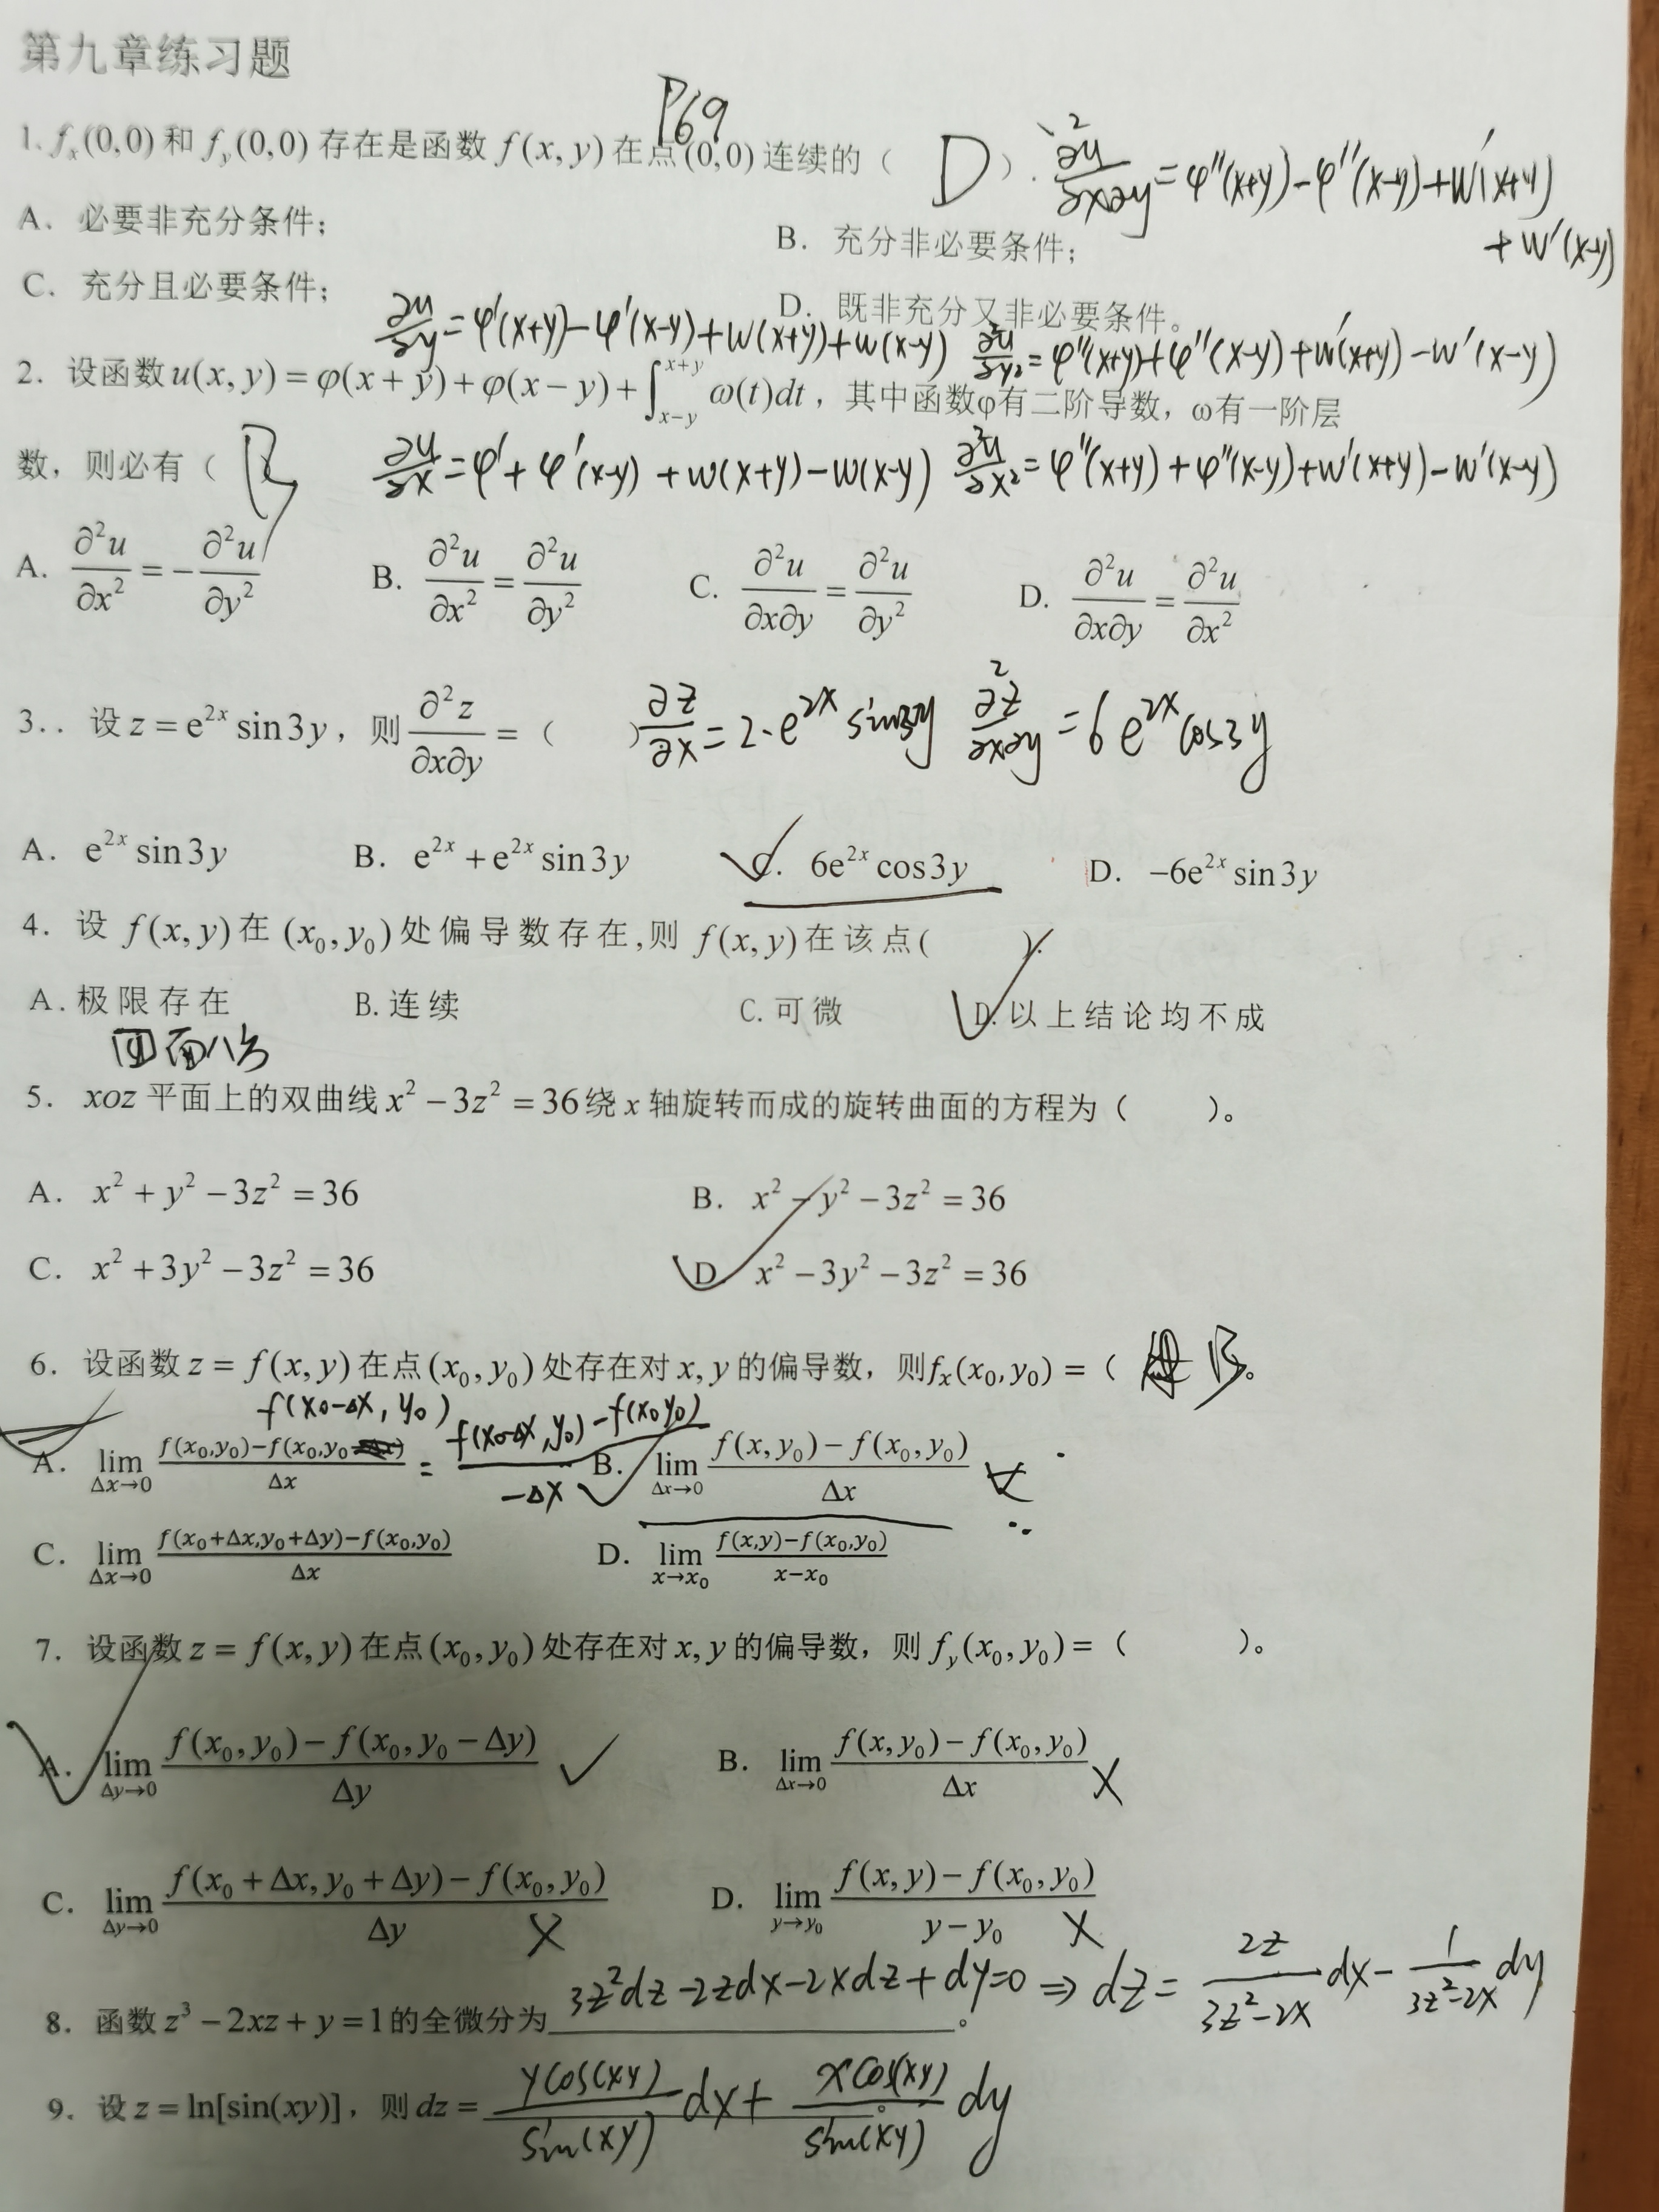 第九章练习题
P69
1. f_x(0,0) 和 f_y(0,0) 存在是函数 f(x,y) 在点(0,0) 连续的（ D ）.
∂²u/∂x∂y = φ''(x+y) − φ''(x−y) + w'(x+y)
+ w'(x−y)
A. 必要非充分条件；
B. 充分非必要条件；
C. 充分且必要条件；
D. 既非充分又非必要条件。
∂u/∂y = φ'(x+y) − φ'(x−y) + w(x+y) + w(x−y)
∂²u/∂y² = φ''(x+y) + φ''(x−y) + w'(x+y) − w'(x−y)
2. 设函数 u(x,y) = φ(x+y) + φ(x−y) + ∫_{x−y}^{x+y} ω(t)dt，其中函数φ有二阶导数，ω有一阶层
数，则必有（ B
∂u/∂x = φ' + φ'(x−y) + w(x+y) − w(x−y)
∂²u/∂x² = φ''(x+y) + φ''(x−y) + w'(x+y) − w'(x−y)
A. ∂²u/∂x² = −∂²u/∂y²
B. ∂²u/∂x² = ∂²u/∂y²
C. ∂²u/∂x∂y = ∂²u/∂y²
D. ∂²u/∂x∂y = ∂²u/∂x²
3.. 设 z = e^{2x} sin3y，则 ∂²z/∂x∂y = （ ）
∂z/∂x = 2·e^{2x} sin3y
∂²z/∂x∂y = 6e^{2x} cos3y
A. e^{2x} sin3y
B. e^{2x} + e^{2x} sin3y
C. 6e^{2x} cos3y
D. −6e^{2x} sin3y
4. 设 f(x,y) 在 (x₀,y₀) 处偏导数存在,则 f(x,y) 在该点( ).
A.极限存在
B.连续
C.可微
D.以上结论均不成
5. xoz 平面上的双曲线 x² − 3z² = 36 绕 x 轴旋转而成的旋转曲面的方程为（ ）。
A. x² + y² − 3z² = 36
B. x² − y² − 3z² = 36
C. x² + 3y² − 3z² = 36
D. x² − 3y² − 3z² = 36
6. 设函数 z = f(x,y) 在点 (x₀,y₀) 处存在对 x,y 的偏导数，则 f_x(x₀,y₀) = （ B。
f(x₀−Δx, y₀)
A. lim_{Δx→0} (f(x₀,y₀)−f(x₀,y₀−Δx))/Δx = (f(x₀−Δx,y₀)−f(x₀y₀))/−Δx
B. lim_{Δx→0} (f(x,y₀) − f(x₀,y₀))/Δx
C. lim_{Δx→0} (f(x₀+Δx,y₀+Δy)−f(x₀,y₀))/Δx
D. lim_{x→x₀} (f(x,y)−f(x₀,y₀))/(x−x₀)
7. 设函数 z = f(x,y) 在点 (x₀,y₀) 处存在对 x,y 的偏导数，则 f_y(x₀,y₀) = （ ）。
A. lim_{Δy→0} (f(x₀,y₀) − f(x₀,y₀−Δy))/Δy ✓
B. lim_{Δx→0} (f(x,y₀) − f(x₀,y₀))/Δx ×
C. lim_{Δy→0} (f(x₀+Δx,y₀+Δy) − f(x₀,y₀))/Δy ×
D. lim_{y→y₀} (f(x,y) − f(x₀,y₀))/(y−y₀) ×
8. 函数 z³ − 2xz + y = 1 的全微分为 3z²dz − 2zdx − 2xdz + dy = 0 ⇒ dz = 2z/(3z²−2x) dx − 1/(3z²−2x) dy 。
9. 设 z = ln[sin(xy)]，则 dz = ycos(xy)/sin(xy) dx + xcos(xy)/sin(xy) dy 。